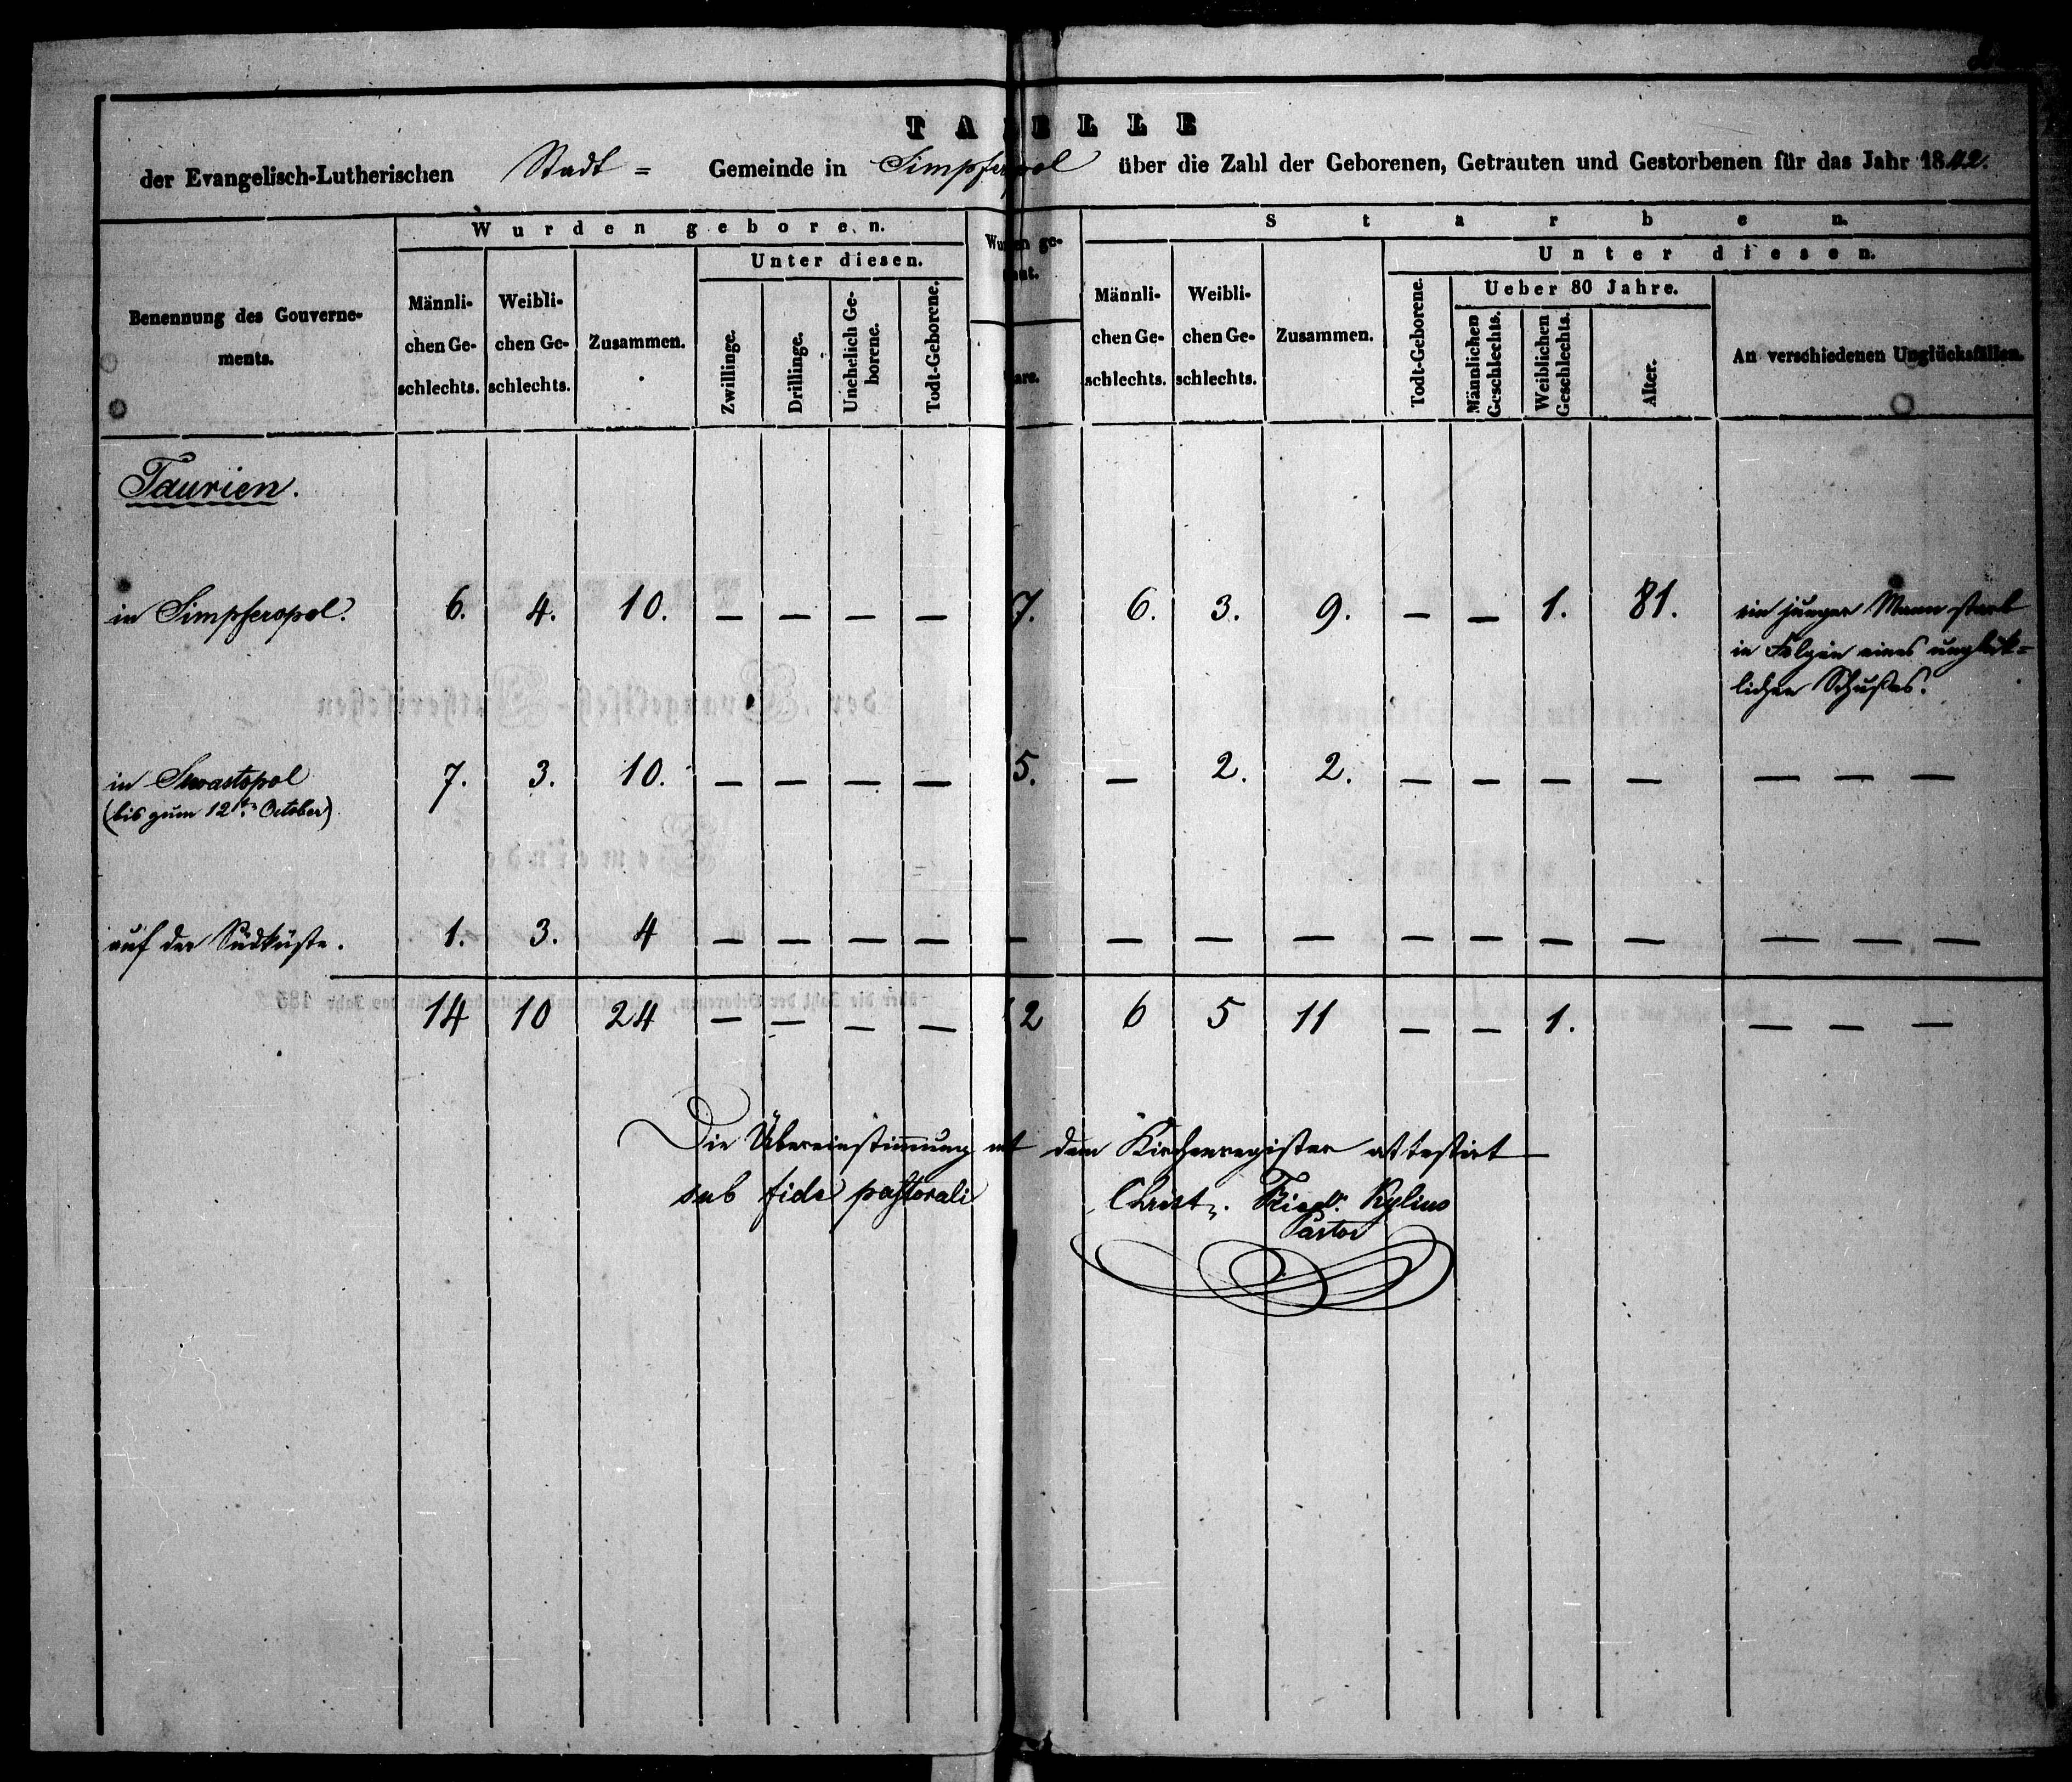 TABELLE
der Evangelisch-Lutherischen Stadt = Gemeinde in Simpferopol über die Zahl der Geborenen, Getrauten und Gestorbenen für das Jahr 1842.
Wurden geboren. Starben.
Unter diesen. Unter diesen.
Benennung des Gouverne-
ments.
Männli-
chen Ge-
schlechts.
Weibli-
chen Ge-
schlechts.
Zusammen.
Zwillinge.
Drillinge.
Unehelich Ge-
borene.
Todt-Geborene.
Männli-
chen Ge-
schlechts.
Weibli-
chen Ge-
schlechts.
Zusammen.
Todt-Geborene.
Ueber 80 Jahre.
Männlichen
Geschlechts.
Weiblichen
Geschlechts.
Alter.
An verschiedenen Unglücksfällen.
Taurien.
in Simpferopol. 6. 4. 10. — — — — 7. 6. 3. 9. — — 1. 81. ein junger Mann starb
in Folgen eines unglück=
lichen Schußes.
in Sewastopol 7. 3. 10. — — — — 5. — 2. 2. — — — — — — —
(bis zum 12ten October)
auf der Südküste. 1. 3. 4 — — — — — — — — — — — — — — —
14 10 24 — — — — 12 6 5 11 — — 1. — — —
Die Übereinstimmung mit dem Kirchenregister attestirt
sub fide pastorali Christ. Fried. Kylius
Pastor